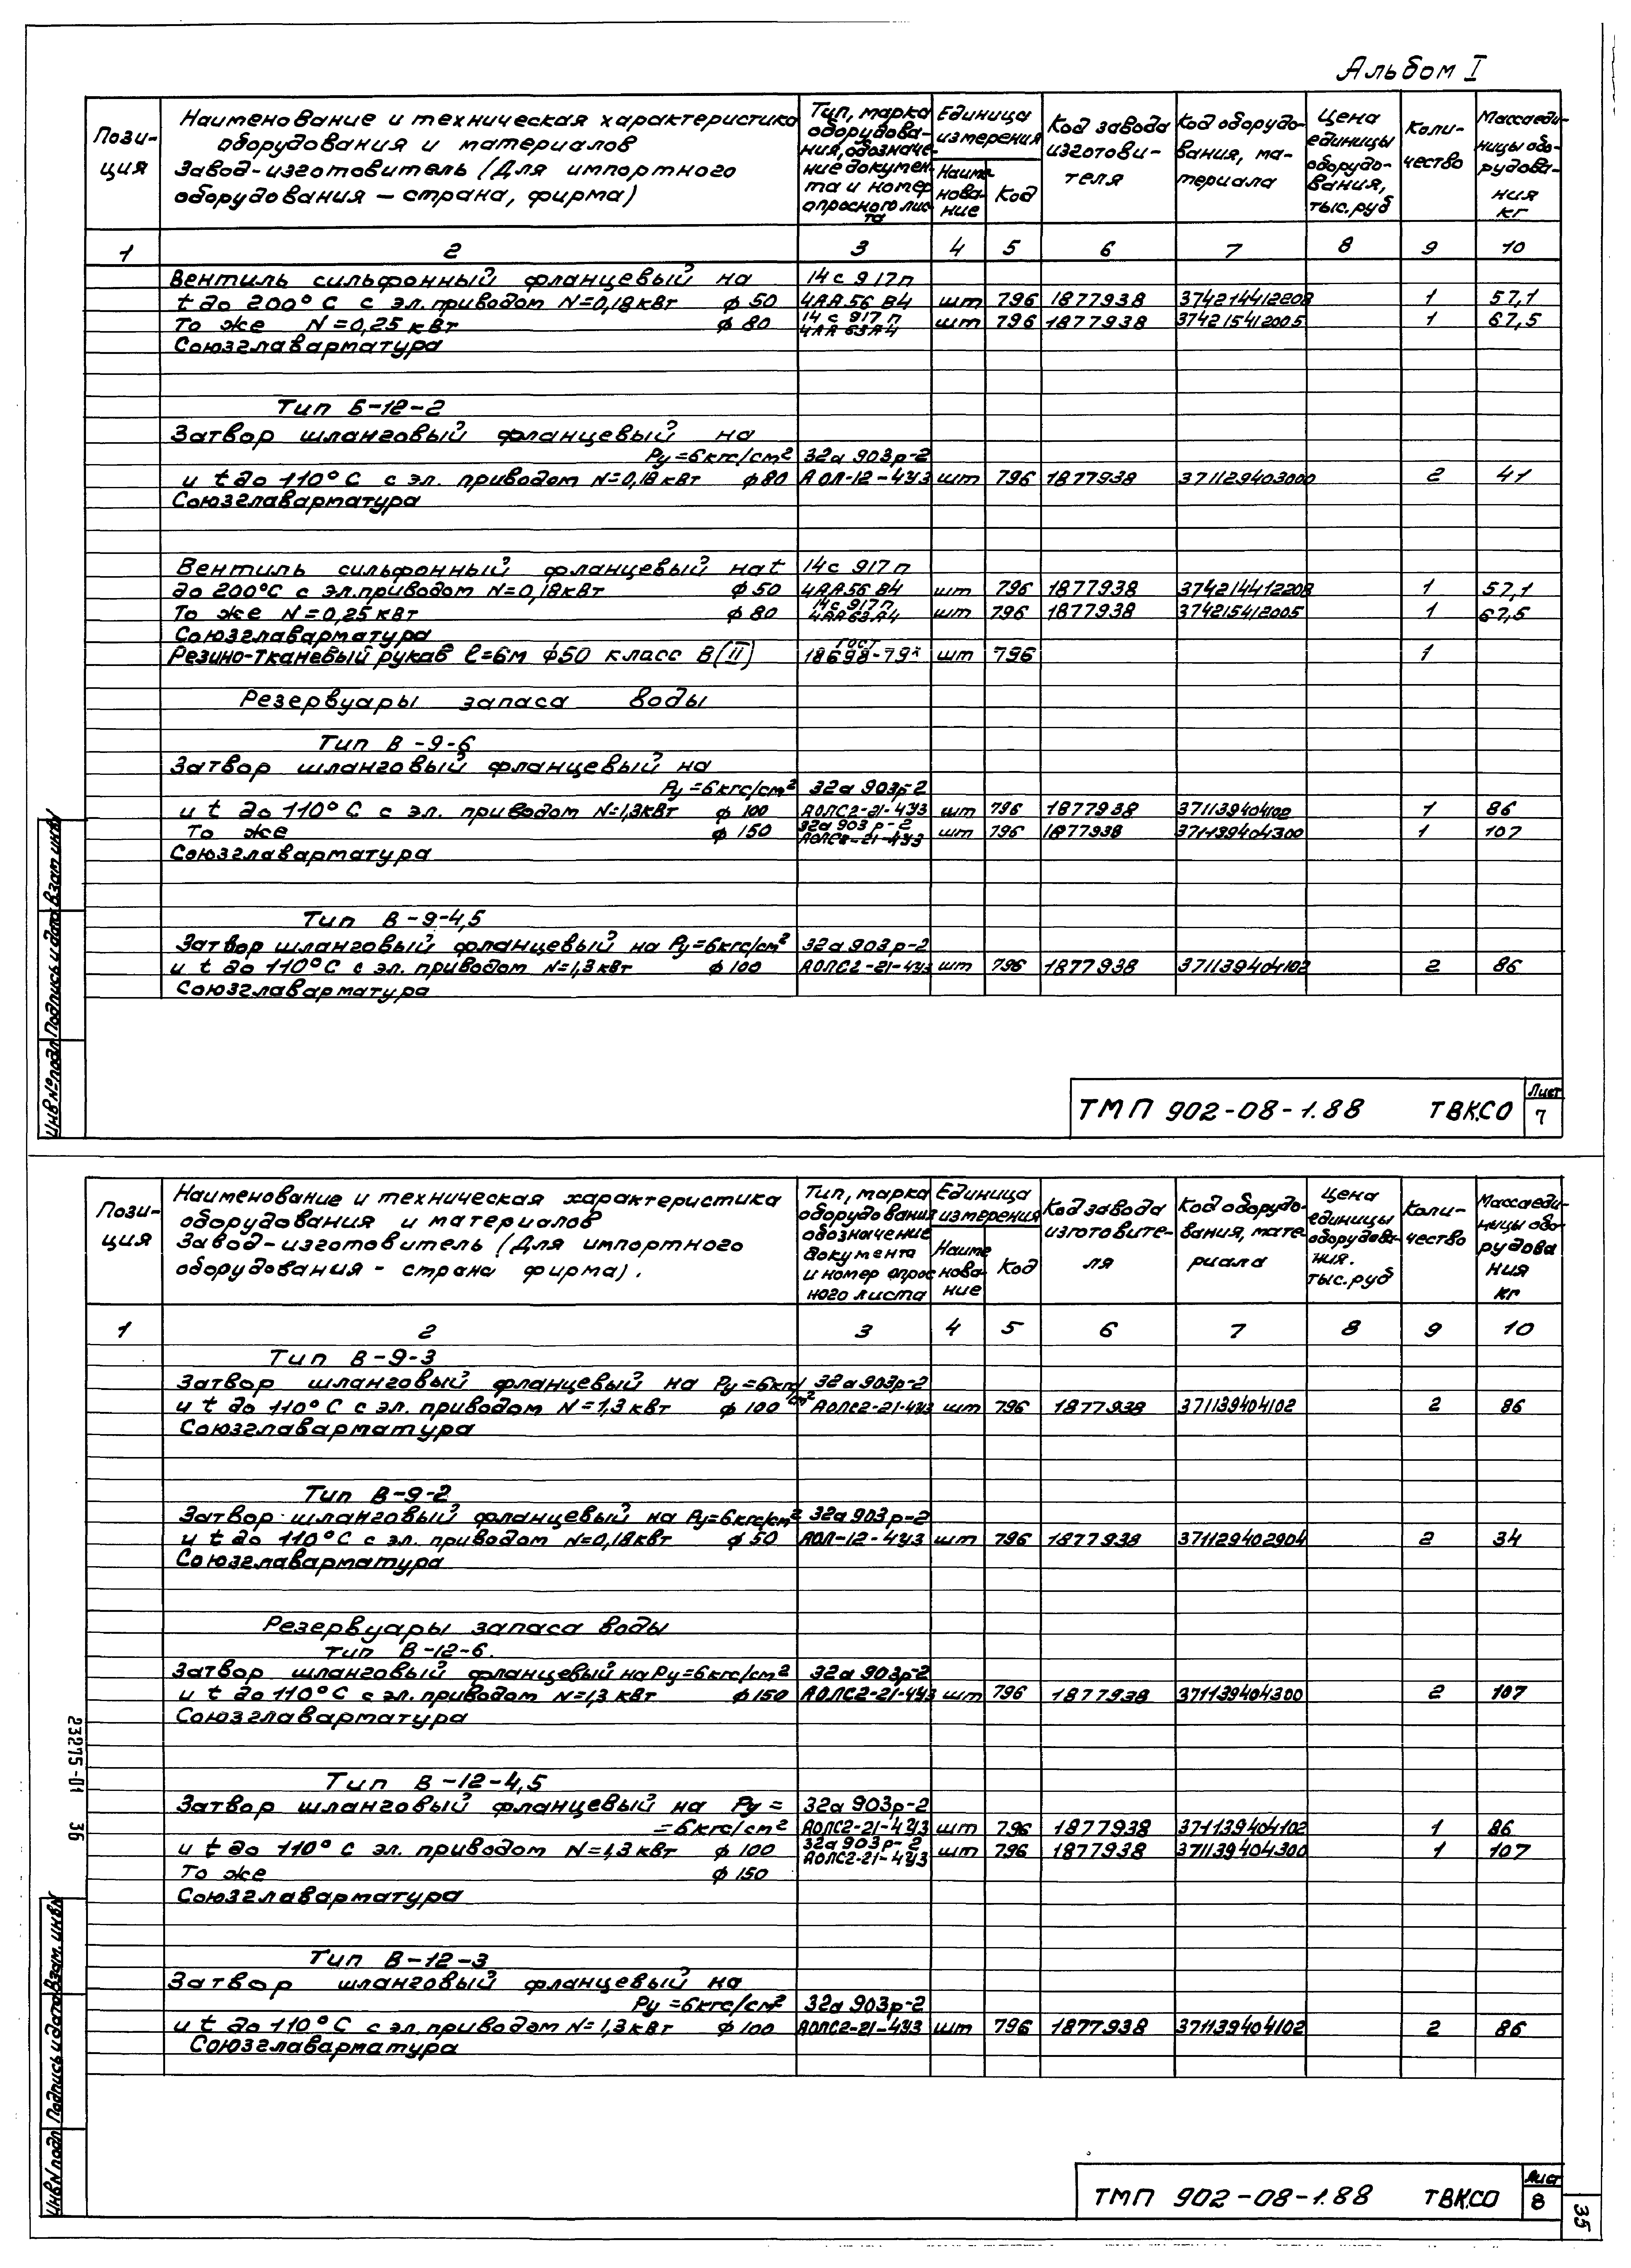 Альбом I
Пози-
ция
Наименование и техническая характеристика
оборудования и материалов
Завод-изготовитель (Для импортного
оборудования – страна, фирма)
Тип, марка
оборудова-
ния, обозначе-
ние докумен-
та и номер
опросного лис-
та
Единица
измерения
Наиме-
нова-
ние
Код
Код завода
изготови-
теля
Код оборудо-
вания, ма-
териала
Цена
единицы
оборудо-
вания,
тыс.руб
Коли-
чество
Масса еди-
ницы обо-
рудова-
ния
кг
1 2 3 4 5 6 7 8 9 10
Вентиль сильфонный фланцевый на 14с 917п
t до 200°С с эл.приводом N=0,18кВт ф 50 4АА56В4 шт 796 1877938 374214412208 1 57,1
То же N=0,25кВт ф 80 14с 917п 4АА63А4 шт 796 1877938 374215412005 1 67,5
Союзглаварматура
Тип Б-12-2
Затвор шланговый фланцевый на
Ру=6кгс/см² 32а 903р-2
и t до 110°С с эл. приводом N=0,18кВт ф80 АОЛ-12-4У3 шт 796 1877938 371129403000 2 41
Союзглаварматура
Вентиль сильфонный фланцевый на t 14с 917п
до 200°С с эл.приводом N=0,18кВт ф 50 4АА56В4 шт 796 1877938 374214412208 1 57,1
То же N=0,25кВт ф 80 14с 917п 4АА63А4 шт 796 1877938 374215412005 1 67,5
Союзглаварматура
Резино-тканевый рукав ℓ=6м ф50 класс В(II) ГОСТ 18698-79* шт 796 1
Резервуары запаса воды
Тип В-9-6
Затвор шланговый фланцевый на
Ру=6кгс/см² 32а 903р-2
и t до 110°С с эл. приводом N=1,3кВт ф 100 АОЛС2-21-4У3 шт 796 1877938 371139404102 1 86
То же ф 150 32а 903р-2 АОЛС2-21-4У3 шт 796 1877938 371139404300 1 107
Союзглаварматура
Тип В-9-4,5
Затвор шланговый фланцевый на Ру=6кгс/см² 32а 903р-2
и t до 110°С с эл. приводом N=1,3кВт ф 100 АОЛС2-21-4У3 шт 796 1877938 371139404102 2 86
Союзглаварматура
Инв№подл Подпись и дата Взам инв№
ТМП 902-08-1.88 ТВК.СО
Лист
7
Пози-
ция
Наименование и техническая характеристика
оборудования и материалов
Завод-изготовитель (Для импортного
оборудования - страна фирма).
Тип, марка
оборудования
обозначение
документа
и номер опрос
ного листа
Единица
измерения
Наиме
нова-
ние
Код
Код завода
изготовите-
ля
Код оборудо-
вания, мате-
риала
Цена
единицы
оборудова-
ния.
тыс.руб
Коли-
чество
Масса еди-
ницы обо-
рудова
ния
кг
1 2 3 4 5 6 7 8 9 10
Тип В-9-3
Затвор шланговый фланцевый на Ру=6кгс/см² 32а 903р-2
и t до 110°С с эл. приводом N=1,3кВт ф 100 АОЛС2-21-4У3 шт 796 1877938 371139404102 2 86
Союзглаварматура
Тип В-9-2
Затвор шланговый фланцевый на Ру=6кгс/см² 32а 903р-2
и t до 110°С с эл. приводом N=0,18кВт ф 50 АОЛ-12-4У3 шт 796 1877938 371129402904 2 34
Союзглаварматура
Резервуары запаса воды
тип В-12-6.
Затвор шланговый фланцевый на Ру=6кгс/см² 32а 903р-2
и t до 110°С с эл. приводом N=1,3 кВт ф 150 АОЛС2-21-4У3 шт 796 1877938 371139404300 2 107
Союзглаварматура
Тип В-12-4,5
Затвор шланговый фланцевый на Ру = 32а 903р-2
=6кгс/см² АОЛС2-21-4У3 шт 796 1877938 371139404102 1 86
и t до 110°С с эл. приводом N=1,3кВт ф 100 32а 903р-2 АОЛС2-21-4У3 шт 796 1877938 371139404300 1 107
То же ф 150
Союзглаварматура
Тип В-12-3
Затвор шланговый фланцевый на
Ру=6кгс/см² 32а 903р-2
и t до 110°С с эл. приводом N=1,3кВт ф 100 АОЛС2-21-4У3 шт 796 1877938 371139404102 2 86
Союзглаварматура
23275-01 36
Инв№подл Подпись и дата Взам. инв№
ТМП 902-08-1.88 ТВК.СО
Лист
8
35